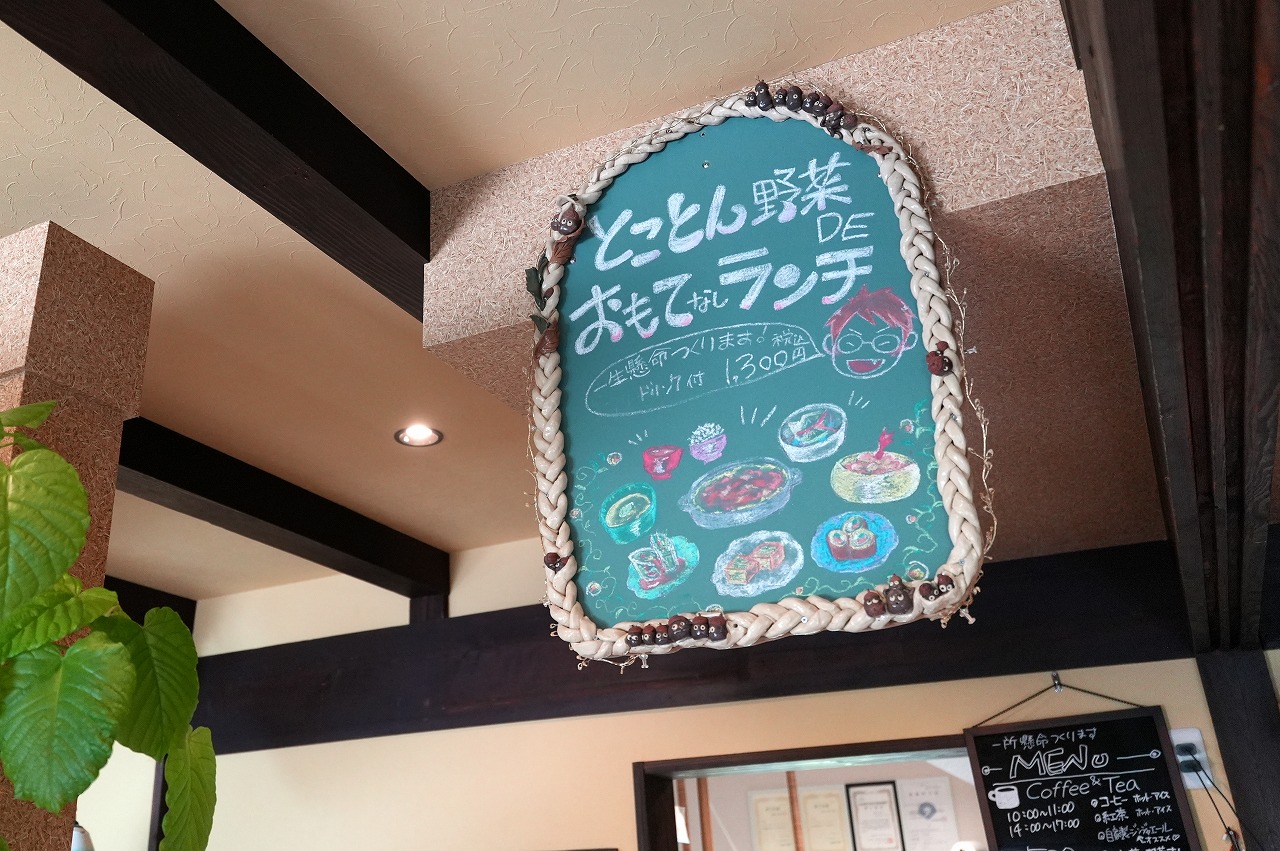 とことん野菜
DE
おもてなしランチ
一生懸命つくります! 税込
ドリンク付 1,300円
一所懸命つくります
MENU
Coffee & Tea
10:00~11:00
14:00~17:00
コーヒー ホット・アイス
紅茶 ホット・アイス
自家製ジンジャエール